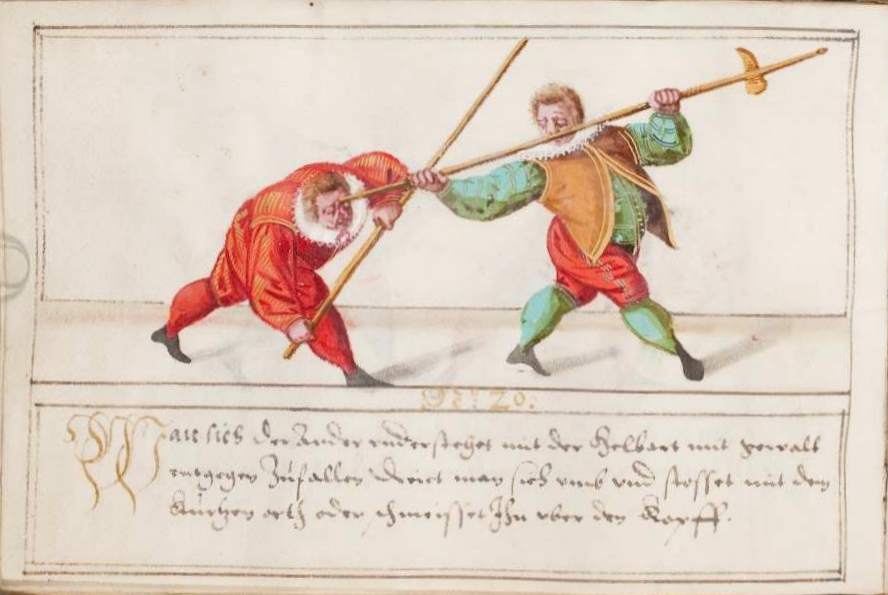 No: 20.
Wan sich der Ander understehet mit der Helbart mit gewalt
entgegen Zufallen Wreict man sich umb und stosset mit dem
Kurtzen orth oder schmeisset Ihn uber den Kopff.